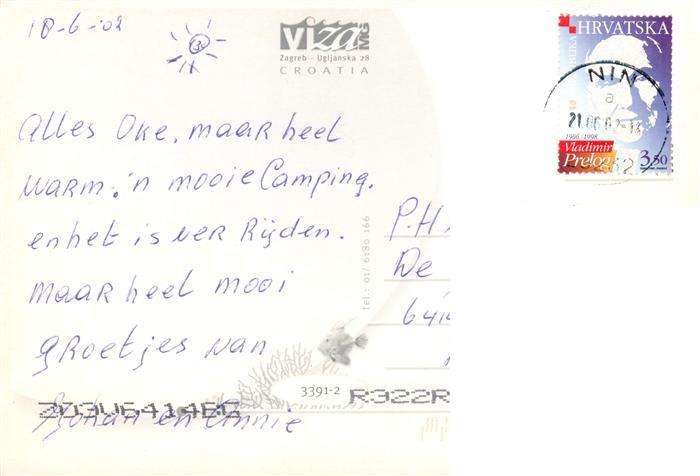 18-6-02
Viza MKS
Zagreb - Ugljanska 28
CROATIA
HRVATSKA
NIN
a
21.06.02-14
1906 -1998
Vladimir
Prelog
3,50
Alles Oke, maar heel
warm. 'n mooie Camping.
en het is ver Rijden.
maar heel mooi
groetjes van
Johan en Annie
P.H.
De
tel.: 01/ 6180 166
3391-2
R322R